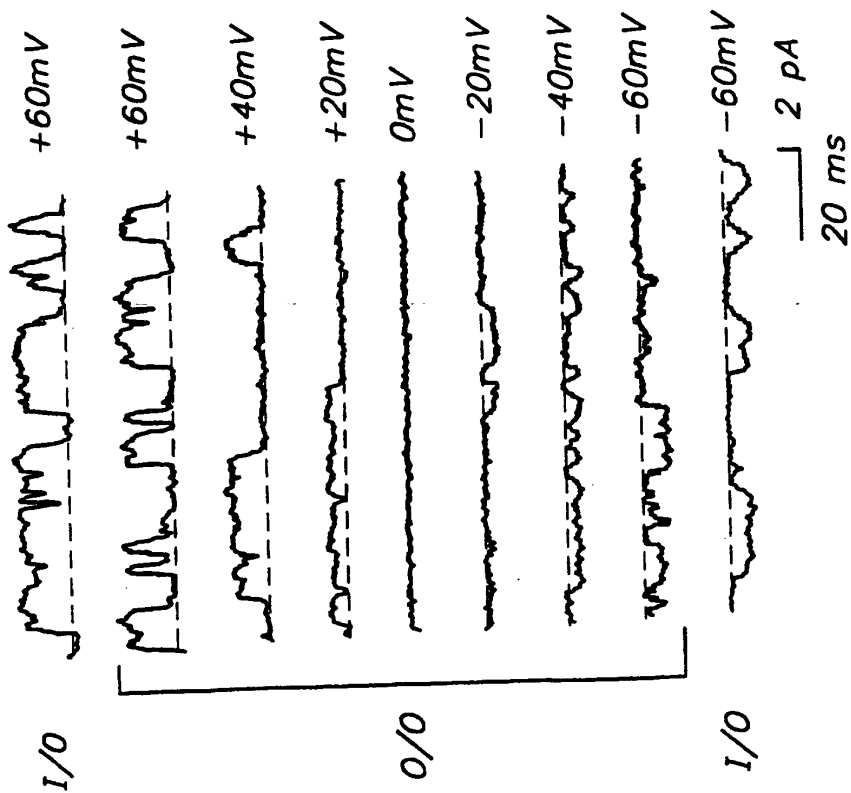 I/O +60mV
+60mV
+40mV
+20mV
O/O 0mV
−20mV
−40mV
−60mV
I/O −60mV
2 pA
20 ms